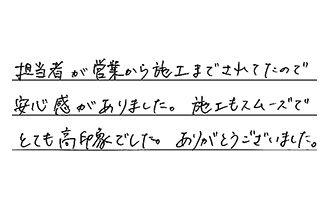 担当者が営業から施工までされてたので
安心感がありました。施工もスムーズで
とても高印象でした。ありがとうございました。